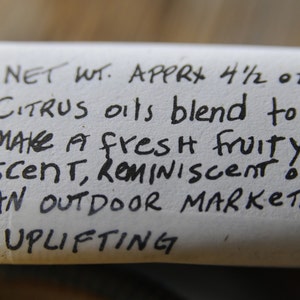 NET WT. APPRX 4½ oz
CITRUS oils blend to
MAKE A fresh fruity
SCENT, REMINISCENT o
AN OUTDOOR MARKET.
UPLIFTING